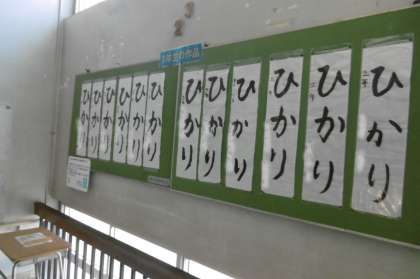 ひかり
ひかり
ひかり
ひかり
ひかり
ひかり
ひかり
ひかり
ひかり
ひかり
ひかり
ひかり
2
3
生の作品